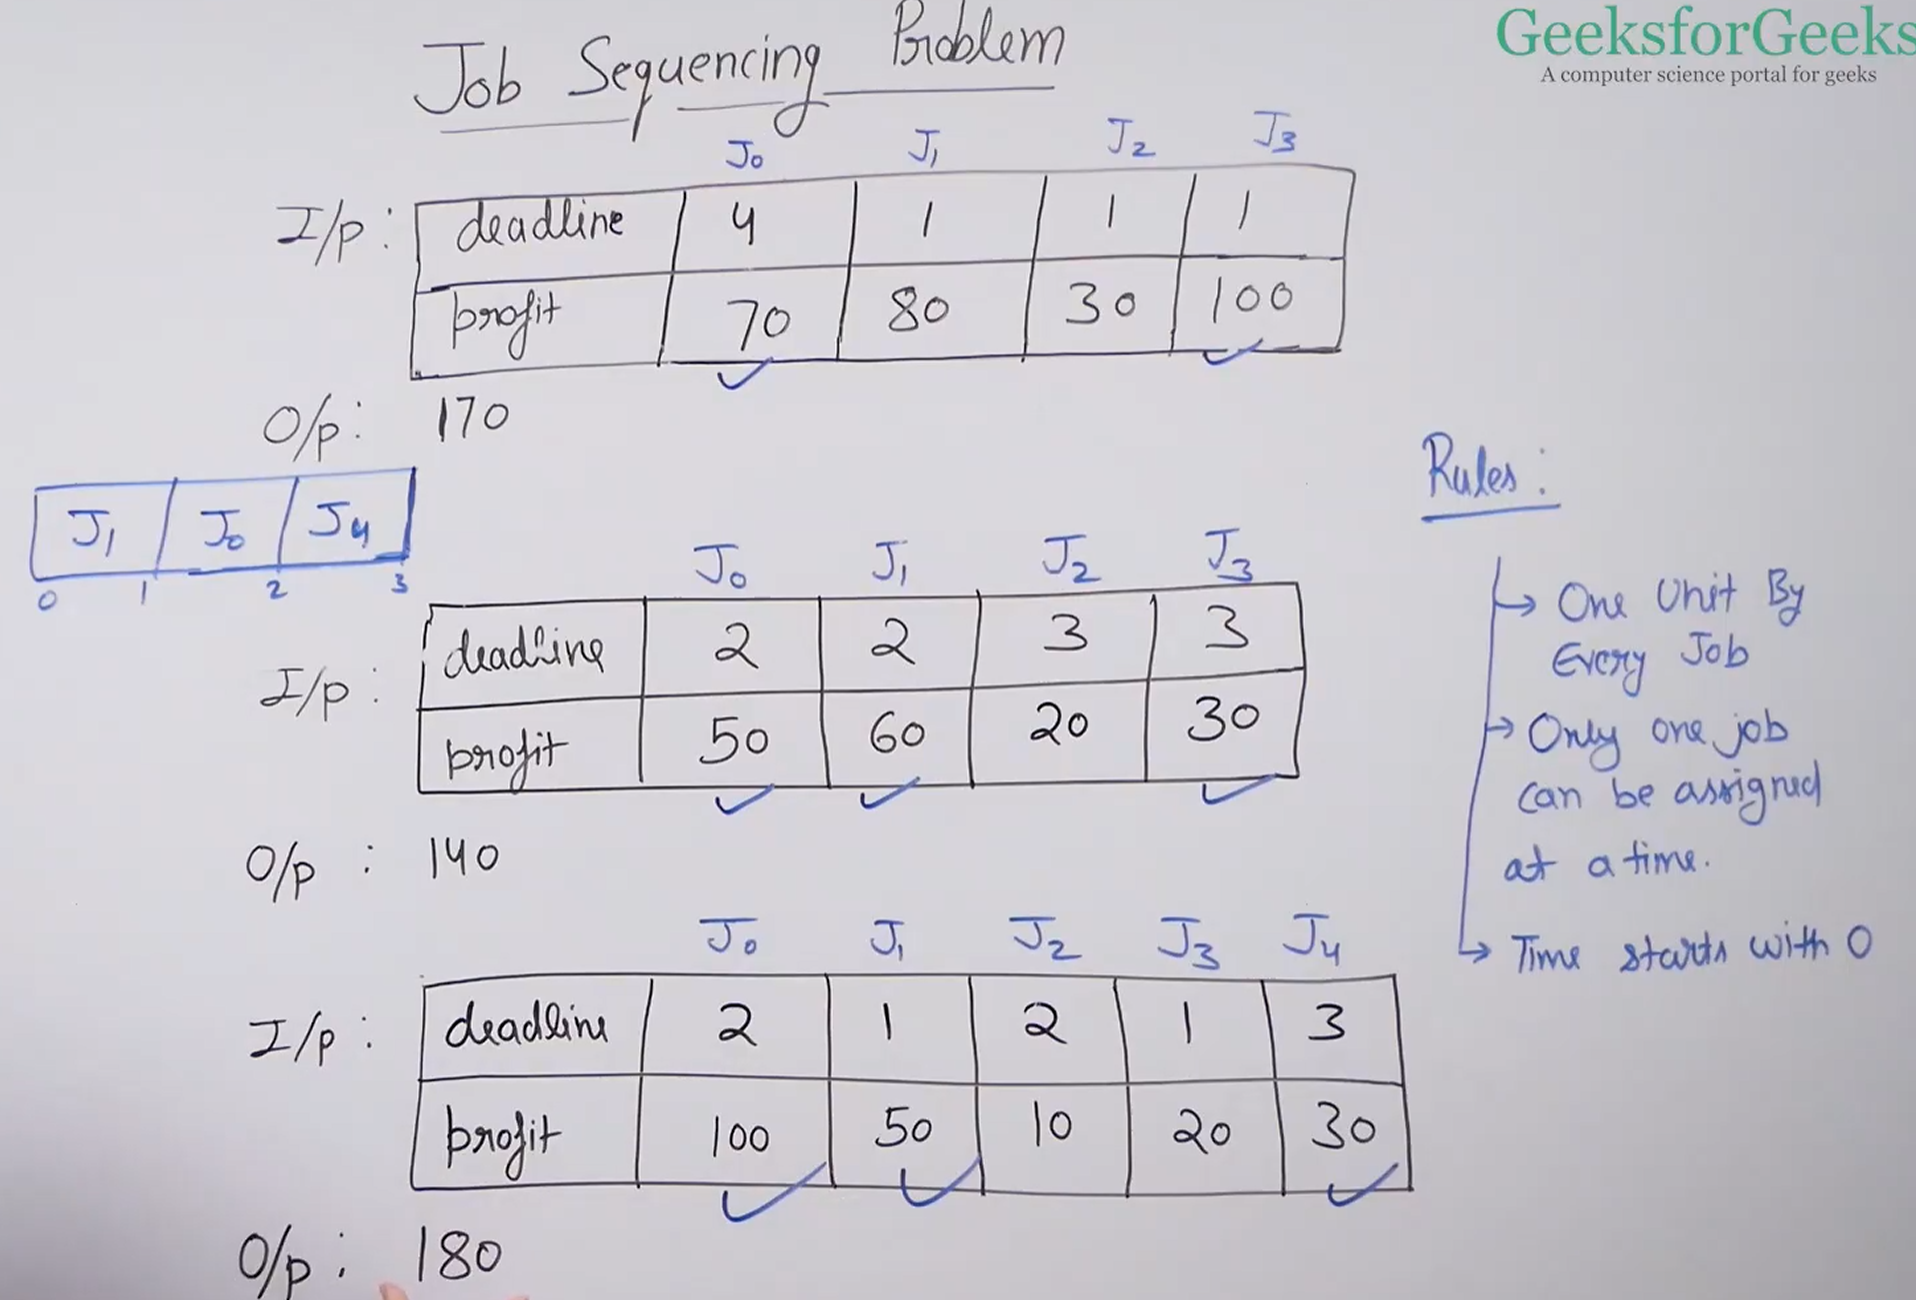 GeeksforGeeks
A computer science portal for geeks
Job Sequencing Problem
J0 J1 J2 J3
I/p: deadline 4 1 1 1
profit 70 80 30 100
O/p: 170
J1 J0 J4
0 1 2 3
J0 J1 J2 J3
I/p: deadline 2 2 3 3
profit 50 60 20 30
O/p: 140
J0 J1 J2 J3 J4
I/p: deadline 2 1 2 1 3
profit 100 50 10 20 30
O/p: 180
Rules:
One Unit By
Every Job
Only one job
can be assigned
at a time.
Time starts with 0